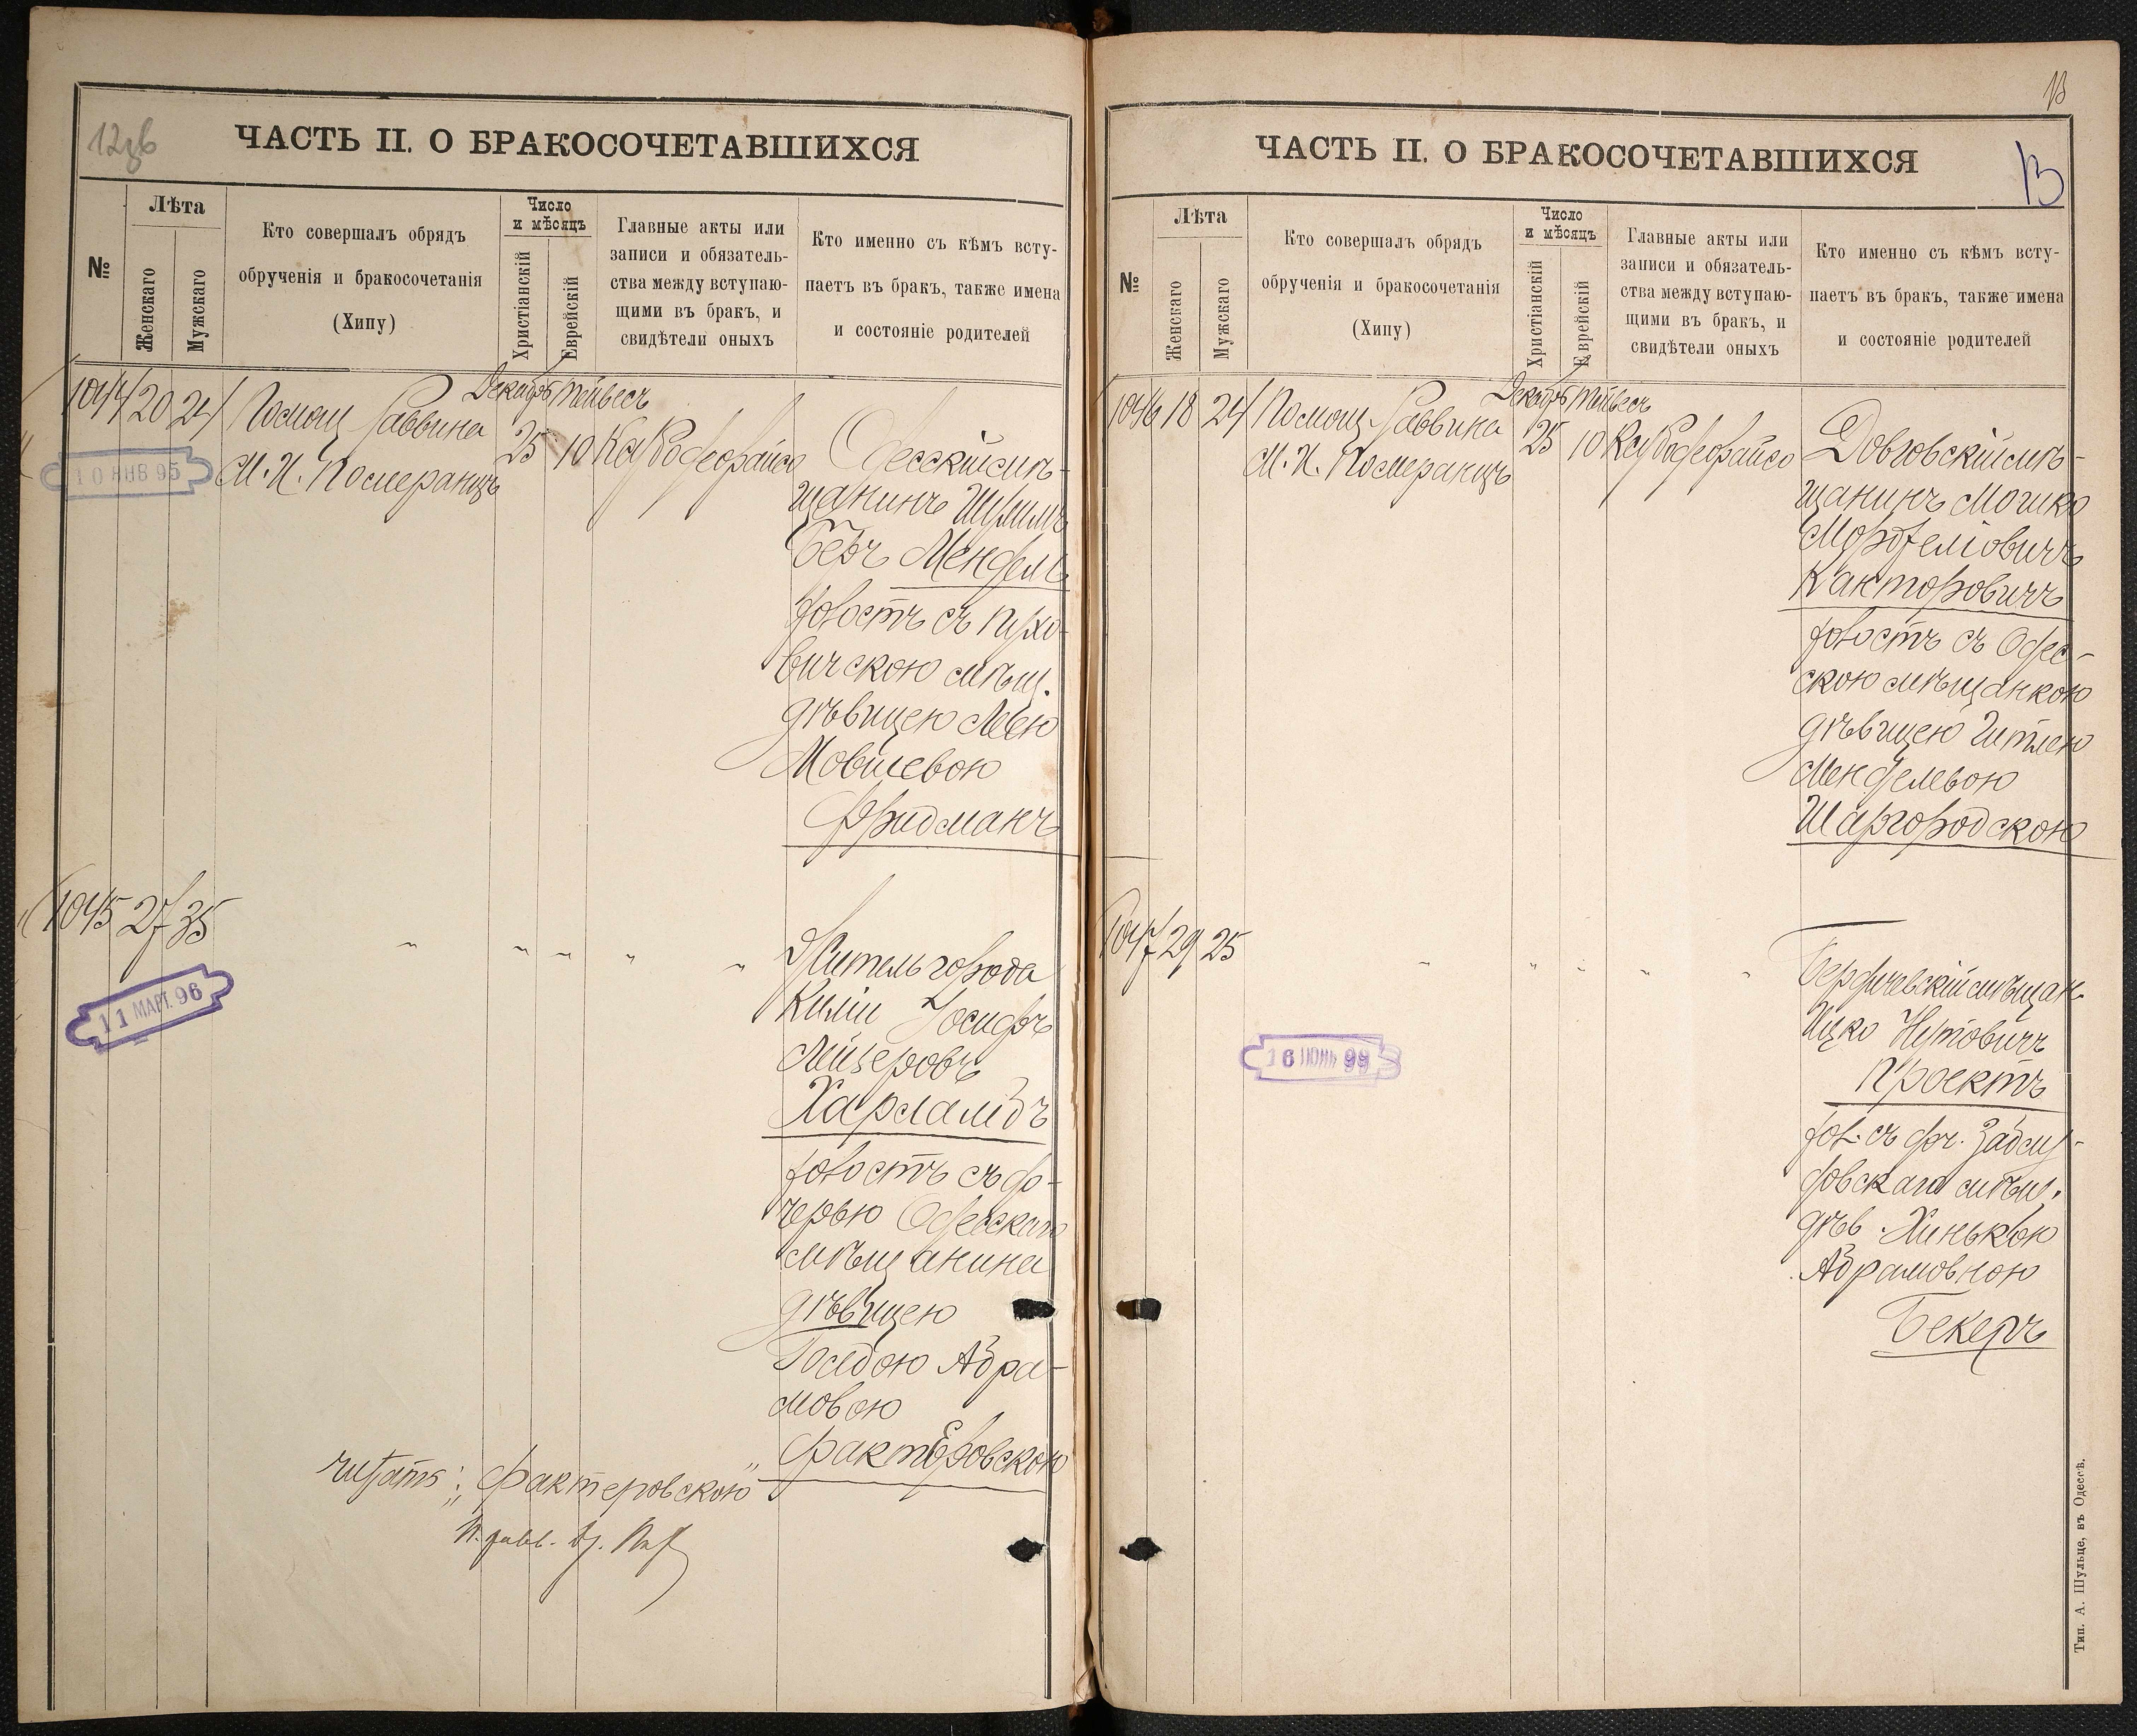 12зв
ЧАСТЬ II. О БРАКОСОЧЕТАВШИХСЯ
№
Лѣта
Женскаго
Мужскаго
Кто совершалъ обрядъ
обрученія и бракосочетанія
(Хипу)
Число
и мѣсяцъ
Христіанскій
Еврейскій
Главные акты или
записи и обязатель-
ства между вступаю-
щими въ бракъ, и
свидѣтели оныхъ
Кто именно съ кѣмъ всту-
паетъ въ бракъ, также имена
и состояніе родителей
1044 20 24 Помощ Раввина
М. И. Померанцъ
Декабрь Тейвесъ
25 10
10 ЯНВ 95
Одесскій мѣ-
щанинъ Шулимъ
Беръ Мендель
холостъ съ
вичскою мѣщ.
дѣвицею Леею
Мовшевою
Фридманъ
1045 27 35 " " " " "
11 МАРТ. 96
Житель города
Киліи Іосифъ
Лейзеровъ
Харламбъ
холостъ съ до-
черью Одесскаго
мѣщанина
дѣвицею
Абра-
мовою
Фактеровскою
читать: „Фактеровскою"
13
ЧАСТЬ II. О БРАКОСОЧЕТАВШИХСЯ
13
№
Лѣта
Женскаго
Мужскаго
Кто совершалъ обрядъ
обрученія и бракосочетанія
(Хипу)
Число
и мѣсяцъ
Христіанскій
Еврейскій
Главные акты или
записи и обязатель-
ства между вступаю-
щими въ бракъ, и
свидѣтели оныхъ
Кто именно съ кѣмъ всту-
паетъ въ бракъ, также имена
и состояніе родителей
1046 18 24 Помощ. Раввина
М. И. Померанцъ
Декабрь Тейвесъ
25 10
мѣ-
щанинъ Мошко
Канторовичъ
холостъ съ Одес-
скою мѣщанкою
дѣвицею Гитлею
Менделевою
Шаргородскою
1047 29 25 " " " " "
16 ІЮНЬ 99
Бердичевскій мѣщан.
Ицко Нутовичъ
Проектъ
хол. съ
мѣщ.
дѣв. Хинькою
Абрамовною
Бекеръ
Тип. А. Шульце, въ Одессѣ.